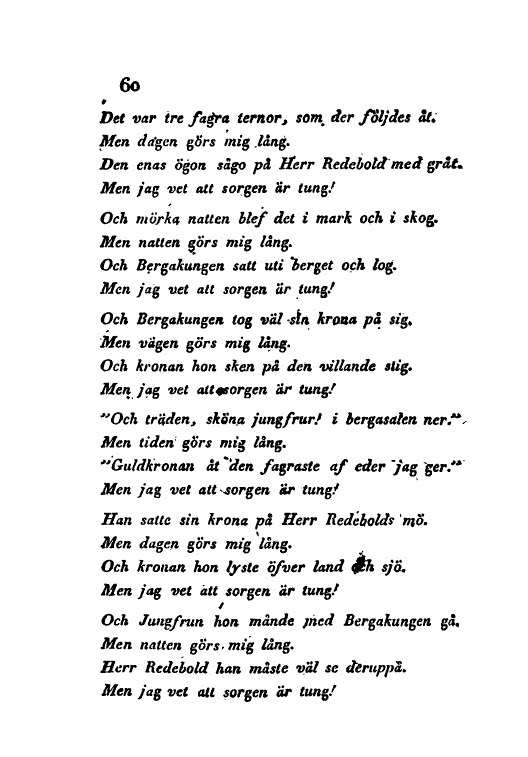 60
Det var tre fagra ternor, som der följdes åt.
Men dagen görs mig lång.
Den enas ögon sågo på Herr Redebold med gråt.
Men jag vet att sorgen är tung!
Och mörka natten blef det i mark och i skog.
Men natten görs mig lång.
Och Bergakungen satt uti berget och log.
Men jag vet att sorgen är tung!
Och Bergakungen tog väl sin krona på sig.
Men vägen görs mig lång.
Och kronan hon sken på den villande stig.
Men jag vet att sorgen är tung!
"Och träden, sköna jungfrur! i bergasalen ner."
Men tiden görs mig lång.
"Guldkronan åt den fagraste af eder jag ger."
Men jag vet att sorgen är tung!
Han satte sin krona på Herr Redebolds mö.
Men dagen görs mig lång.
Och kronan hon lyste öfver land och sjö.
Men jag vet att sorgen är tung!
Och Jungfrun hon månde med Bergakungen gå.
Men natten görs mig lång.
Herr Redebold han måste väl se deruppå.
Men jag vet att sorgen är tung!